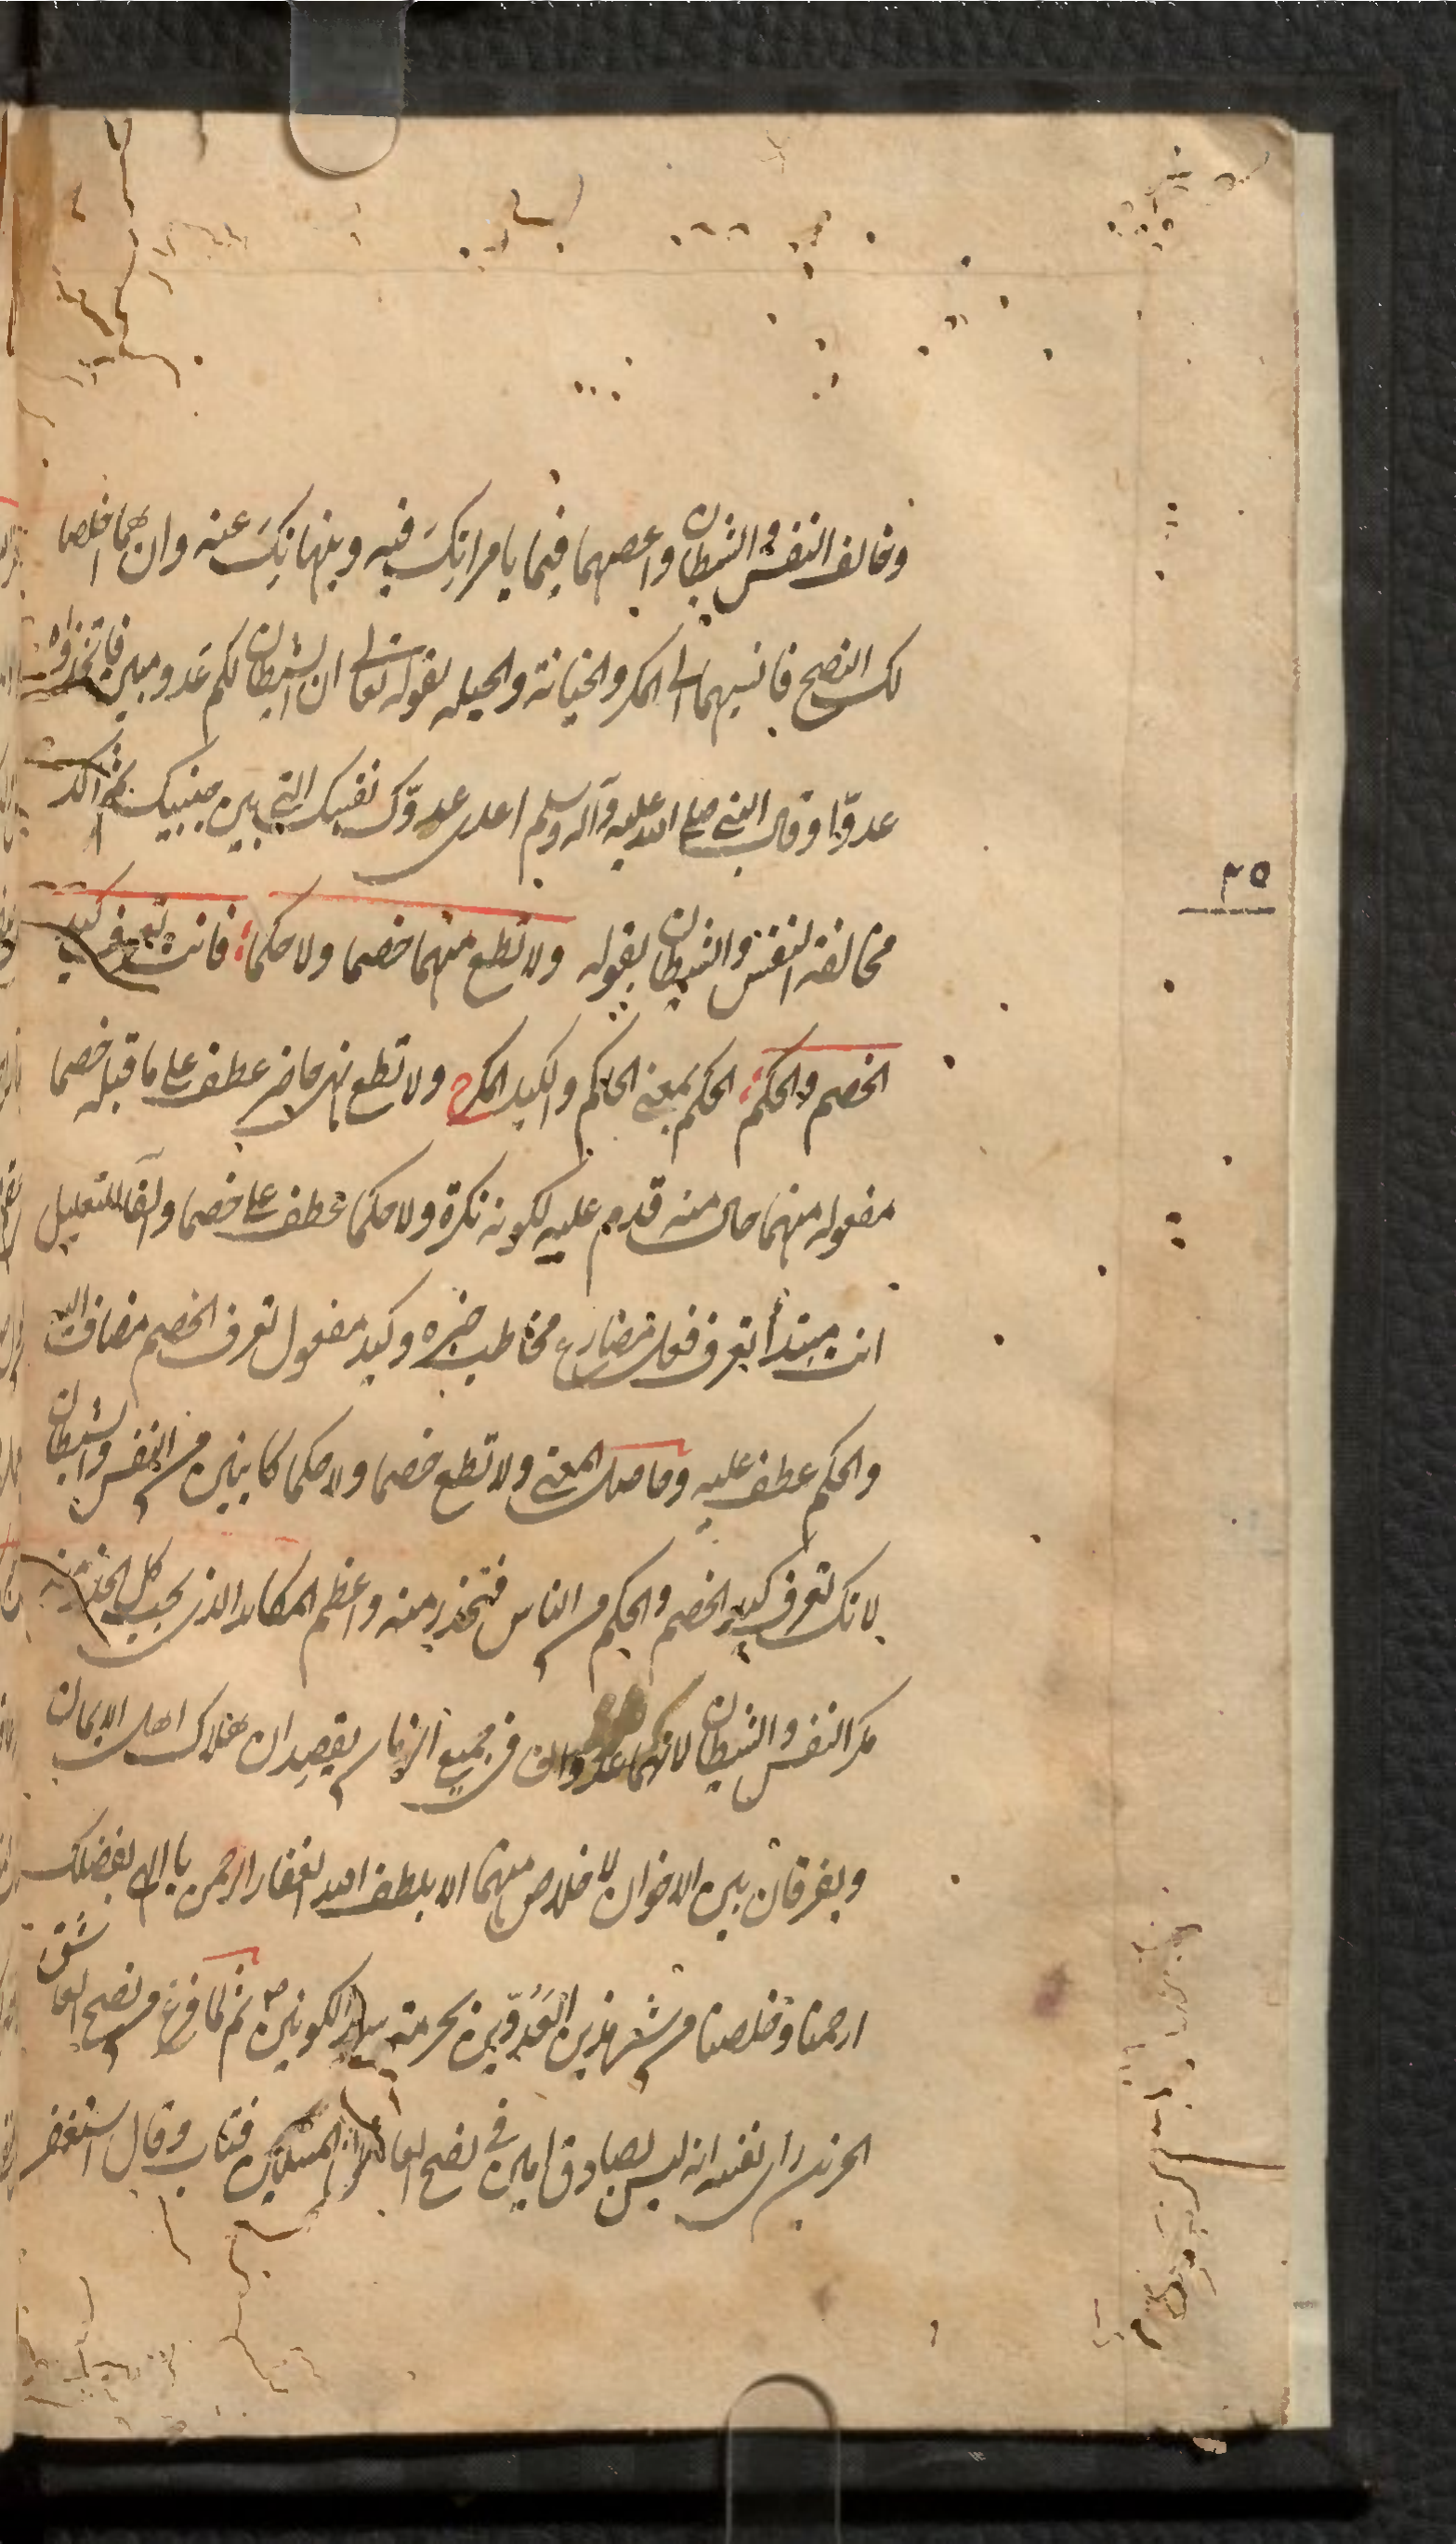 وخالف النفس والشيطان واعصهما فيما يامرانك فيه وينهانك عنه وان هما اخلصا
لك النصح فانسبهما الى المكر والخيانة والحيله لقوله تعالى ان الشيطان لكم عدو مبين فاتخذوه
عدوّا وقال النبى صلى الله عليه وآله وسلم اعدى عدوّك نفسك التى بين جنبيك ثم اكد
٢٥
مخالفة النفس والشيطان بقوله ولا تطع منهما خصما ولا حكما فانت تعرف كيد
الخصم والحكم الحكم بمعنى الحاكم والكيد المكر ولا تطع نهى حاضر عطف على ما قبله خصما
مفعوله منهما حال منه قدم عليه لكونه نكرة ولا حكما عطف على خصما والفا للتعليل
انت مبتدأ تعرف فعل مضارع مخاطب خبره وكيد مفعول تعرف الخصم مضاف اليه
والحكم عطف عليه وحاصل المعنى ولا تطع خصما ولا حكما كاينين من النفس والشيطان
لانك تعرف كيد الخصم والحكم من الناس فتحذر منه واعظم المكايد الذى يجب كل الحذر منه
مكر النفس والشيطان لانهما عدوان فى جميع الازمان يقصدان هلاك اهل الايمان
ويفرقان بين الاخوان لا خلاص منهما الا بلطف الله الغفار الرحمن يا الهى بفضلك
ارحمنا وخلصنا من شر هذين العدوّين بحرمة سيد الكونين ثم لما فرغ من نصح العاشق
الحزين راى نفسه انه ليس بصادق امين فى نصح المسلمين فتاب وقال استغفر